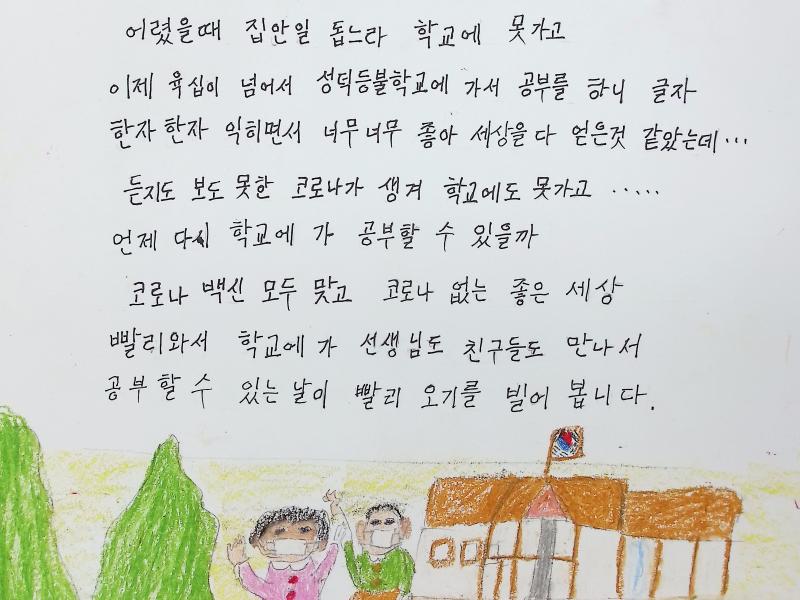 어렸을때 집안일 돕느라 학교에 못가고
이제 육십이 넘어서 성덕등불학교에 가서 공부를 하니 글자
한자 한자 익히면서 너무너무 좋아 세상을 다 얻은것 같았는데...
듣지도 보도 못한 코로나가 생겨 학교에도 못가고 .....
언제 다시 학교에 가 공부할 수 있을까
코로나 백신 모두 맞고 코로나 없는 좋은 세상
빨리와서 학교에 가 선생님도 친구들도 만나서
공부할 수 있는 날이 빨리 오기를 빌어 봅니다.